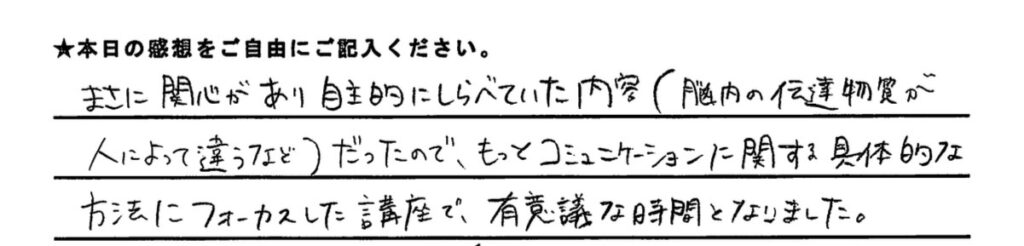 ★本日の感想をご自由にご記入ください。
まさに関心があり自主的にしらべていた内容(脳内の伝達物質が
人によって違うなど)だったので、もっとコミュニケーションに関する具体的な
方法にフォーカスした講座で、有意議な時間となりました。